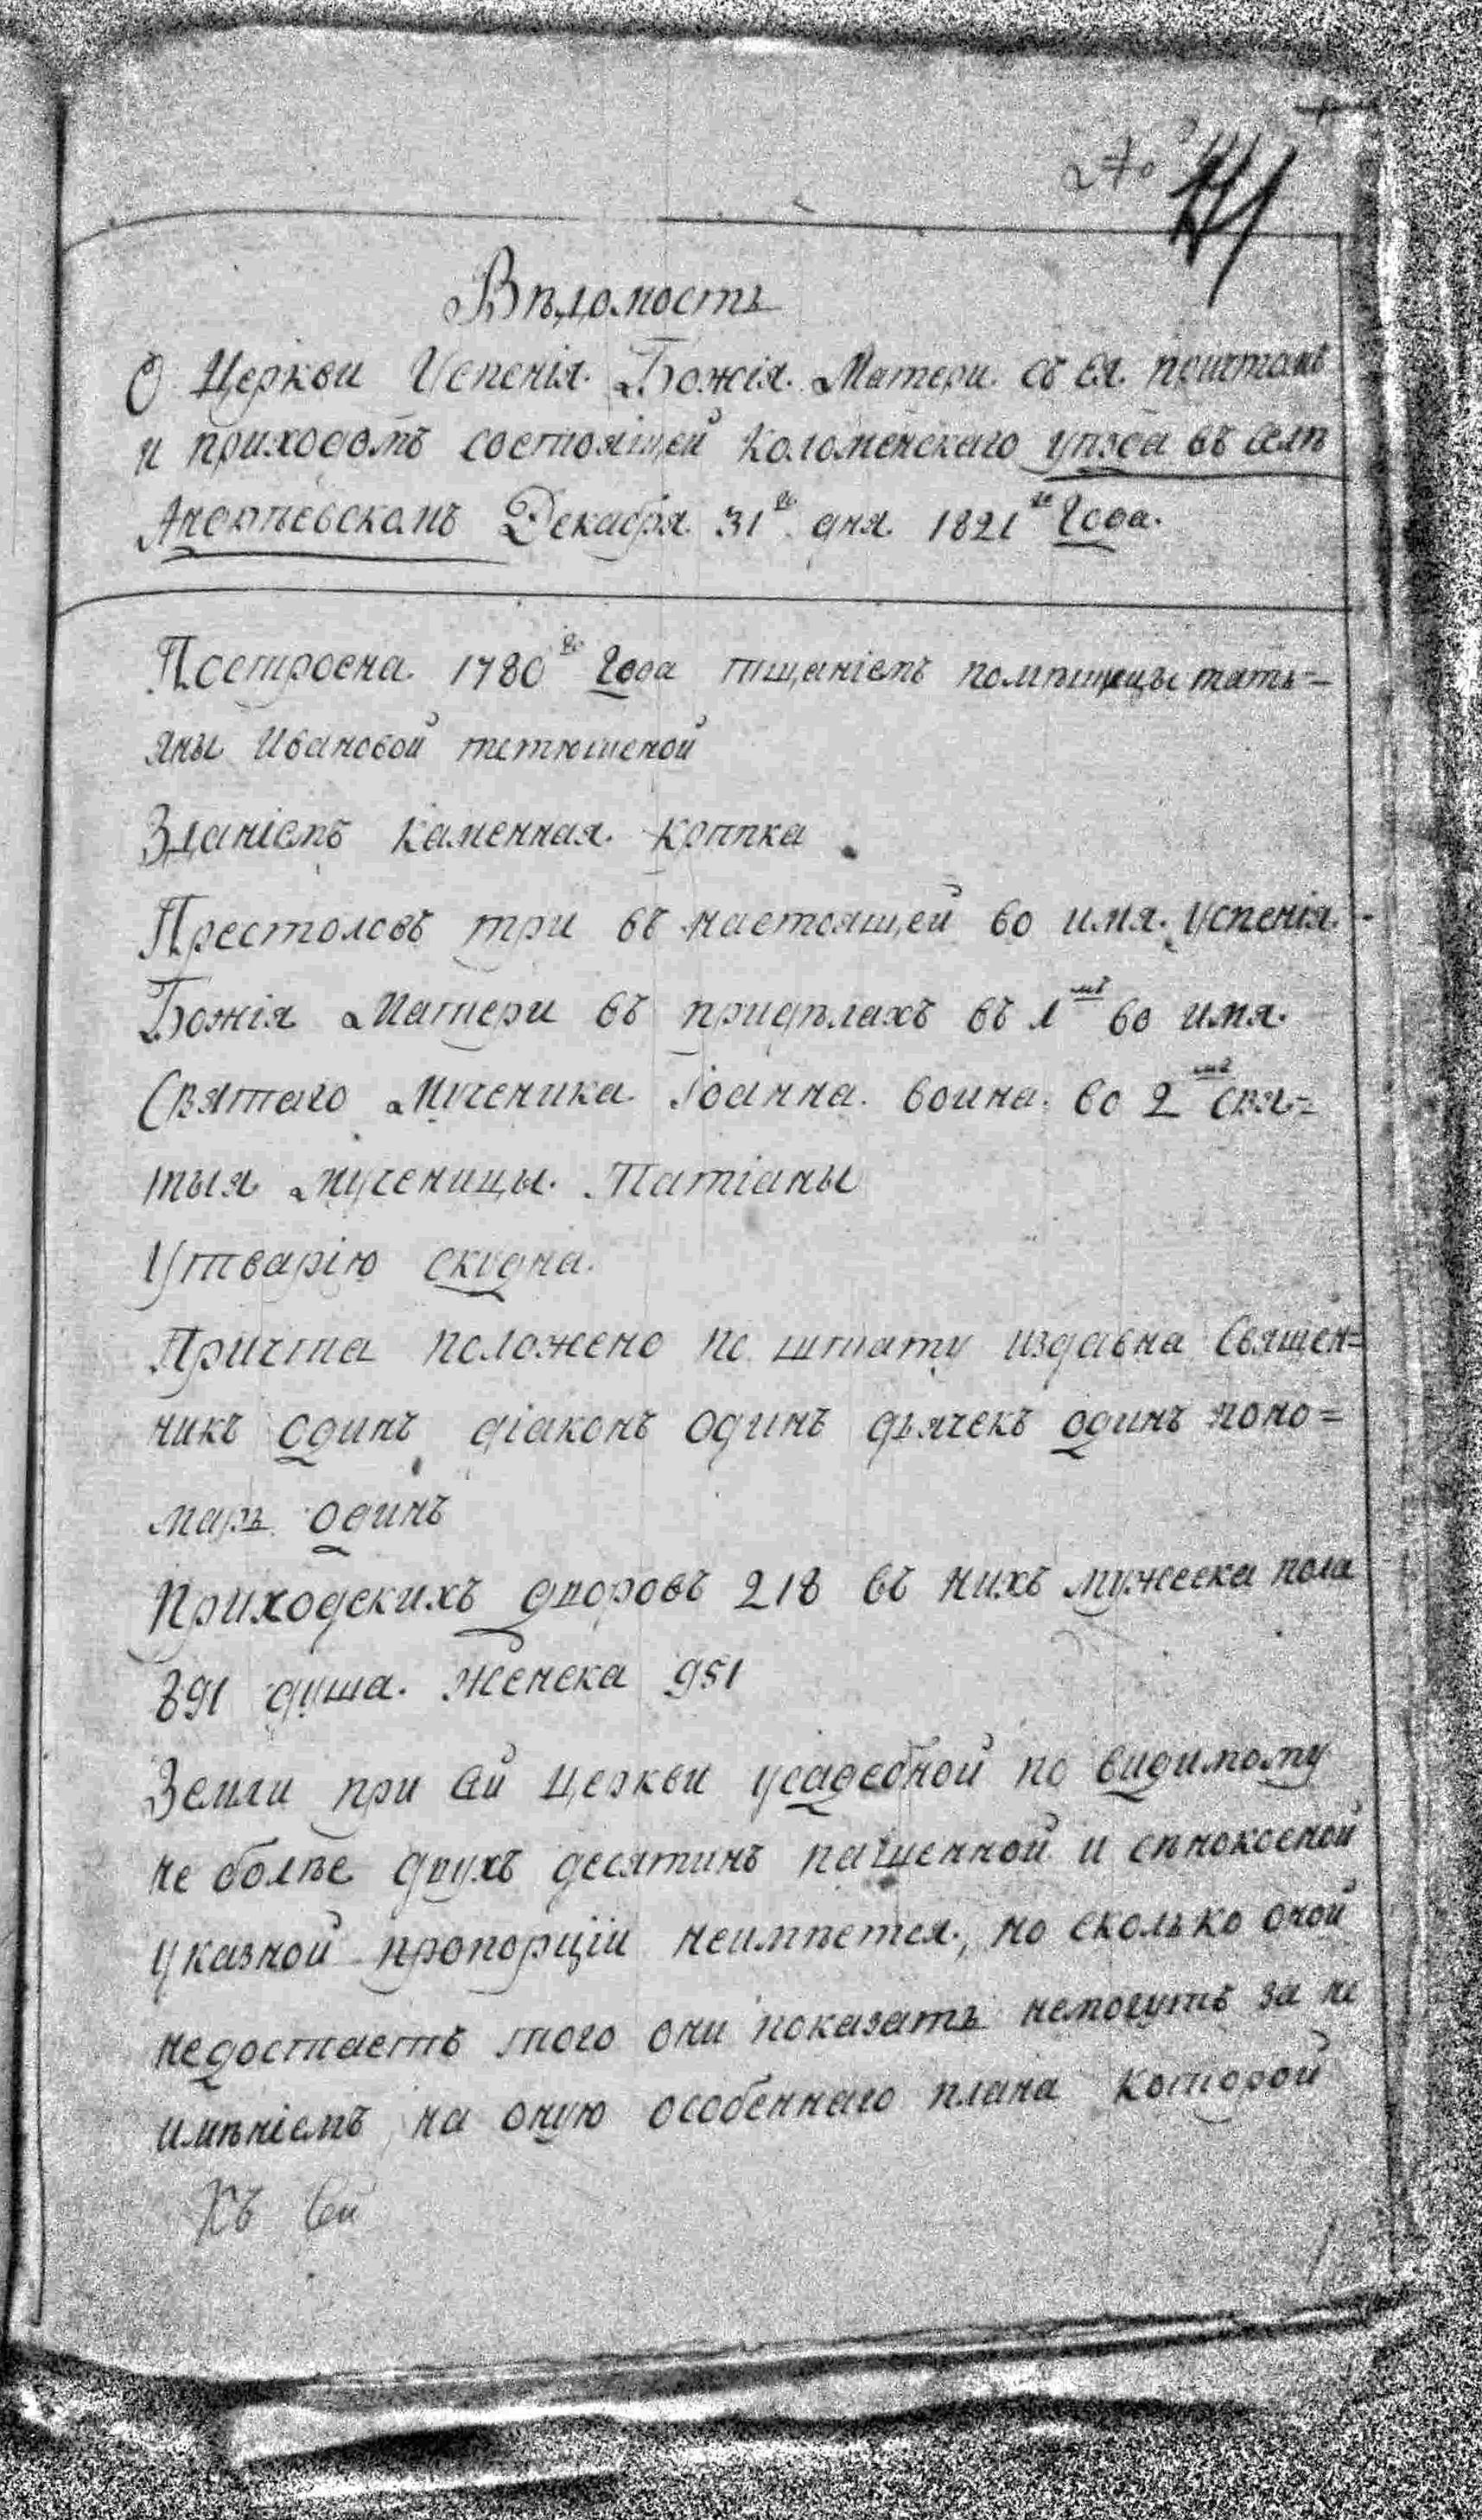 Вѣдомость
О Церкви Успенія Божія Матери съ ея причтомъ
и приходомъ состоящей Коломенскаго уѣзда въ селѣ
Декабря 31го дня 1821го Года.
Построена 1780го Года тщаніемъ помѣщицы тать=
яны Ивановой тетюшеной
Зданіемъ каменная крѣпка
Престоловъ три въ настоящей во имя Успенія
Божія Матери въ придѣлахъ въ 1мъ во имя
Святаго Мученика Іоанна воина во 2мъ свя=
тыя мученицы Татіаны
Утварію скудна.
Причта положено по штату издавна Священ=
никъ одинъ діаконъ одинъ дьячекъ одинъ поно=
марь одинъ
Приходскихъ дворовъ 218 въ нихъ мужеска пола
891 душа. женска 951
Земли при сей церкви усадебной по видимому
не болѣе двухъ десятинъ пашенной и сѣнокосной
указной пропорціи неимѣется, но сколько оной
недостаетъ того они показать немогутъ за не
имѣніемъ на оную особеннаго плана которой
Къ сей